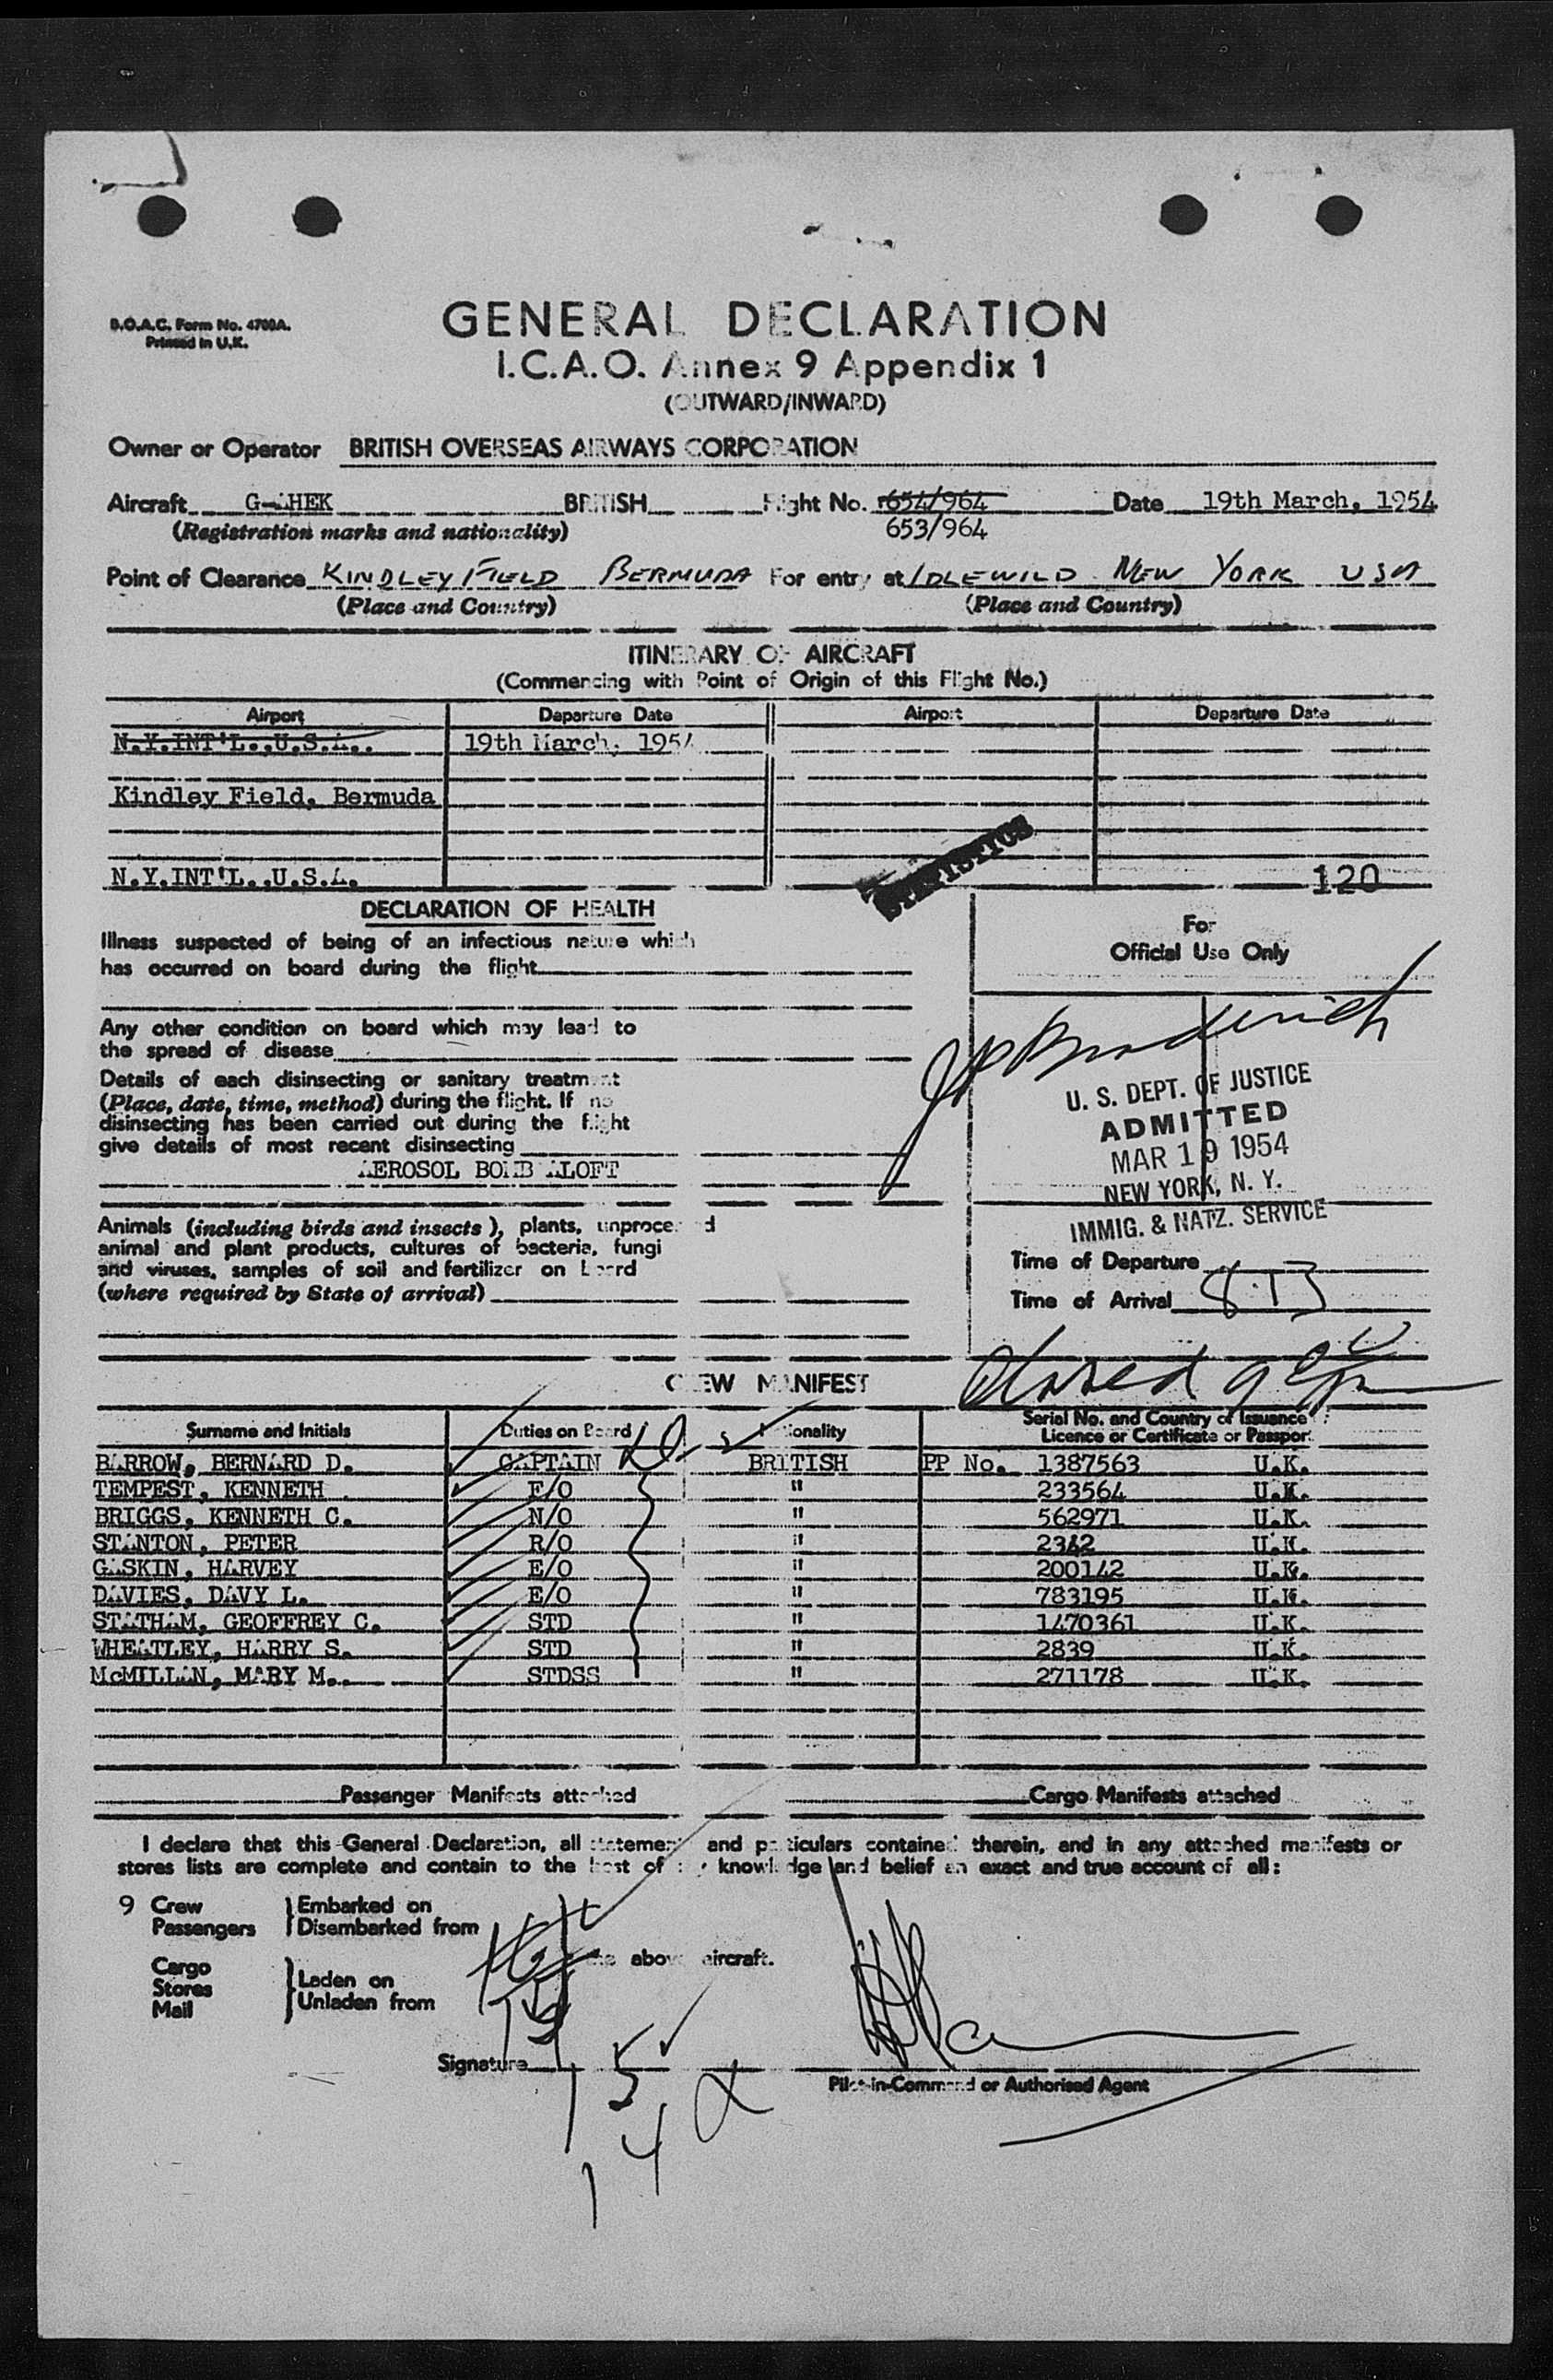 B.O.A.C. Form No. 4700A.
Printed in U.K.
GENERAL DECLARATION
I.C.A.O. Annex 9 Appendix 1
(OUTWARD/INWARD)
Owner or Operator BRITISH OVERSEAS AIRWAYS CORPORATION
Aircraft G-AHEK BRITISH Flight No. 654/964 Date 19th March, 1954
(Registration marks and nationality) 653/964
Point of Clearance KINDLEY FIELD BERMUDA For entry at IDLEWILD NEW YORK USA
(Place and Country) (Place and Country)
ITINERARY OF AIRCRAFT
(Commencing with Point of Origin of this Flight No.)
Airport Departure Date Airport Departure Date
N.Y.INT'L.,U.S.A.. 19th March, 1954
Kindley Field, Bermuda
STATISTICS
N.Y.INT'L.,U.S.A. 120
DECLARATION OF HEALTH
For
Official Use Only
Illness suspected of being of an infectious nature which
has occurred on board during the flight
Any other condition on board which may lead to
the spread of disease
Details of each disinsecting or sanitary treatment
(Place, date, time, method) during the flight. If no
disinsecting has been carried out during the flight
give details of most recent disinsecting
AEROSOL BOMB ALOFT
U. S. DEPT. OF JUSTICE
ADMITTED
MAR 19 1954
NEW YORK, N. Y.
IMMIG. & NATZ. SERVICE
Animals (including birds and insects), plants, unprocessed
animal and plant products, cultures of bacteria, fungi
and viruses, samples of soil and fertilizer on board
(where required by State of arrival)
Time of Departure
Time of Arrival
CREW MANIFEST
Surname and Initials Duties on Board Nationality Serial No. and Country of Issuance
Licence or Certificate or Passport
BARROW, BERNARD D. CAPTAIN BRITISH PP No. 1387563 U.K.
TEMPEST, KENNETH F/O " 233564 U.K.
BRIGGS, KENNETH C. N/O " 562971 U.K.
STANTON, PETER R/O " 2342 U.K.
GASKIN, HARVEY E/O " 200142 U.K.
DAVIES, DAVY L. E/O " 783195 U.K.
STATHAM, GEOFFREY C. STD " 1470361 U.K.
WHEATLEY, HARRY S. STD " 2839 U.K.
McMILLAN, MARY M.. STDSS " 271178 U.K.
Passenger Manifests attached Cargo Manifests attached
I declare that this General Declaration, all statements and particulars contained therein, and in any attached manifests or
stores lists are complete and contain to the best of my knowledge and belief an exact and true account of all:
9 Crew Embarked on
Passengers Disembarked from
the above aircraft.
Cargo
Stores Laden on
Mail Unladen from
Signature
Pilot-in-Command or Authorised Agent